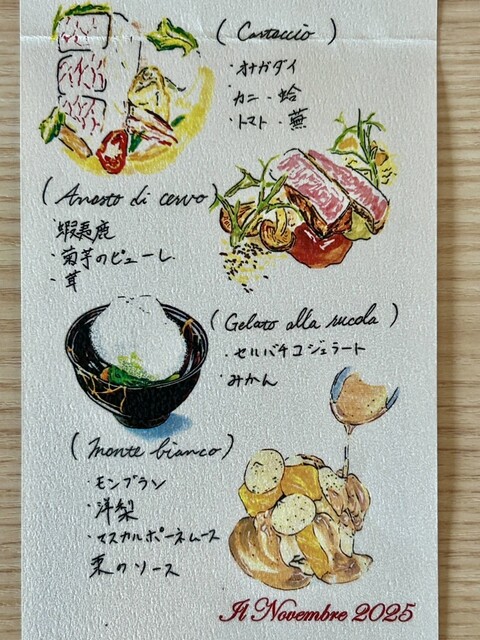 ( Cartaccio )
・オナガダイ
・カニ・蛤
・トマト・蕪
( Arrosto di cervo )
・蝦夷鹿
・菊芋のピューレ
・茸
( Gelato alla rucola )
・セルバチコジェラート
・みかん
( Monte bianco )
・モンブラン
・洋梨
・マスカルポーネムース
のソース
Il Novembre 2025